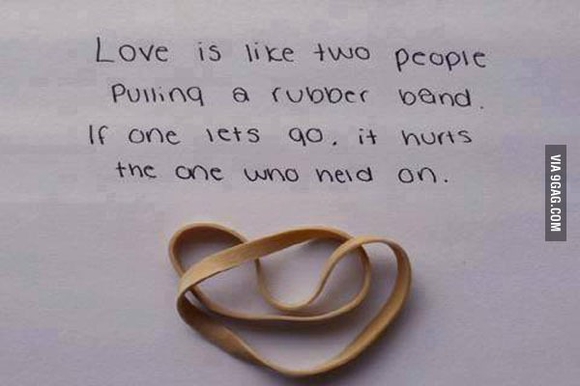 Love is like two people
Pulling a rubber band.
If one lets go, it hurts
the one who held on.
VIA 9GAG.COM